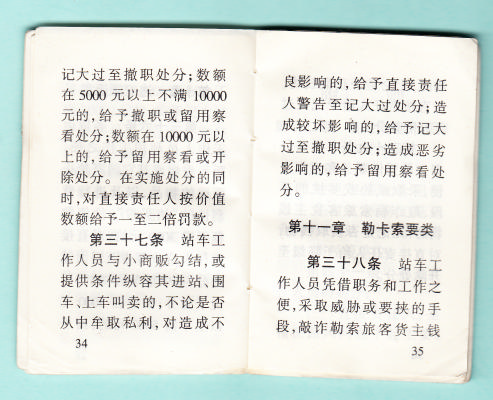 记大过至撤职处分；数额
在5000元以上不满10000
元的，给予撤职或留用察
看处分；数额在10000元以
上的，给予留用察看或开
除处分。在实施处分的同
时，对直接责任人按价值
数额给予一至二倍罚款。
第三十七条 站车工
作人员与小商贩勾结，或
提供条件纵容其进站、围
车、上车叫卖的，不论是否
从中牟取私利，对造成不
34
良影响的，给予直接责任
人警告至记大过处分；造
成较坏影响的，给予记大
过至撤职处分；造成恶劣
影响的，给予留用察看处
分。
第十一章 勒卡索要类
第三十八条 站车工
作人员凭借职务和工作之
便，采取威胁或要挟的手
段，敲诈勒索旅客货主钱
35